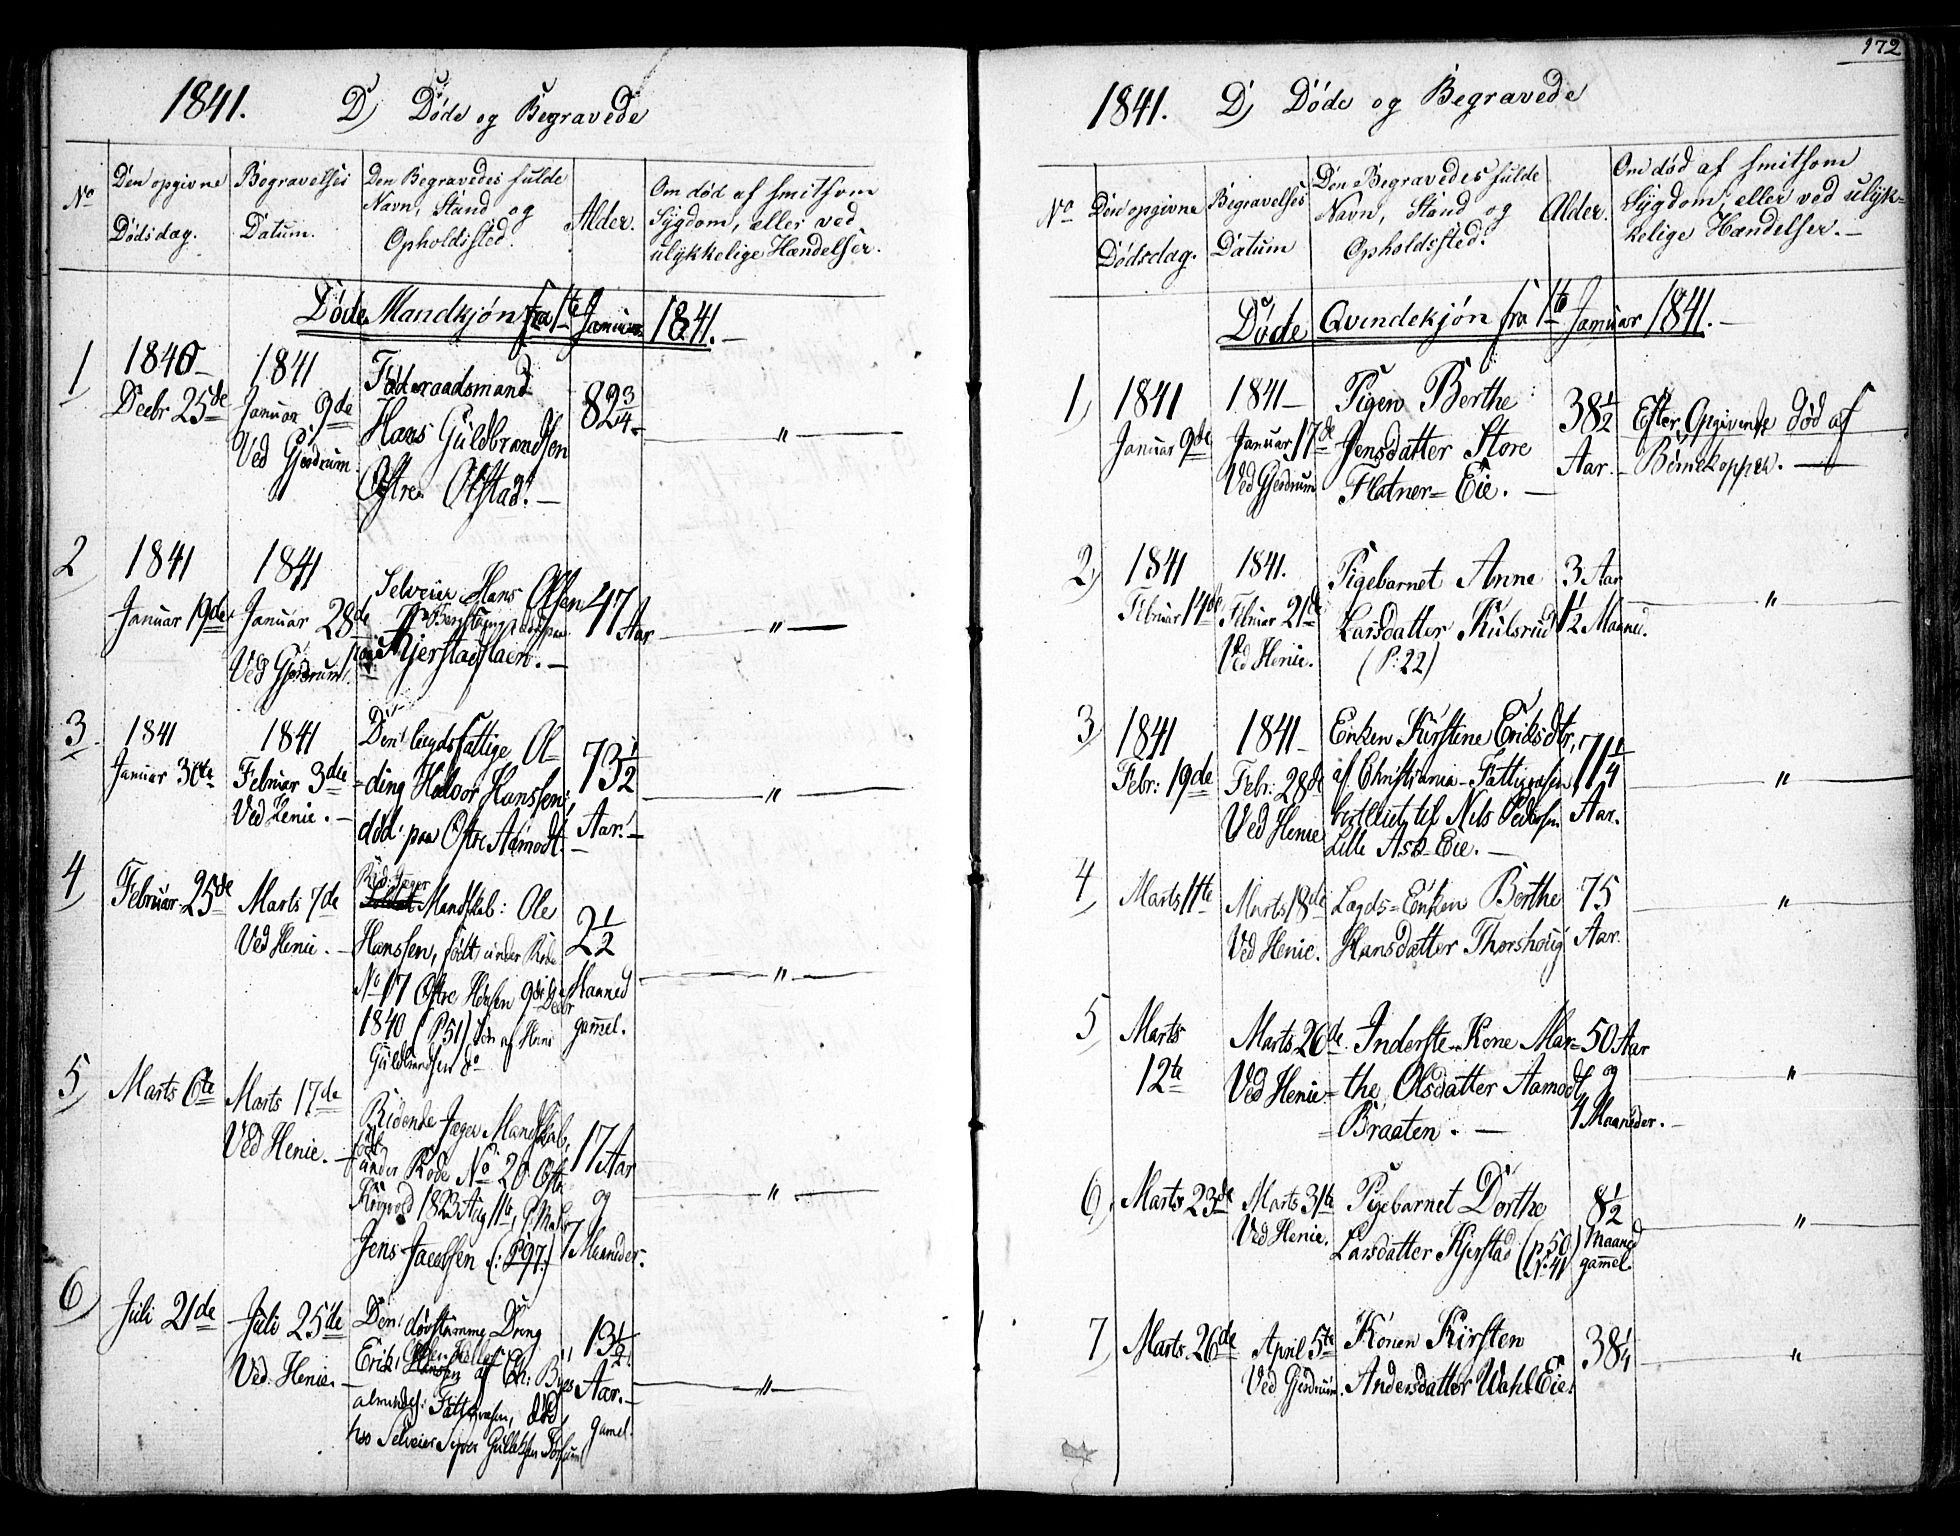 1841. D) Døde og Begravede
No
Den opgivne Dødsdag.
Begravelses Datum.
Den Begravedes fulde
Navn, Stand og
Opholdssted.
Alder.
Om død af smitsom
Sygdom, eller ved
ulykkelige Hændelser.
Døde Mandkjøn fra 1te Januar 1841.
1)
1840
Decbr 25de
1841
Januar 9de
Ved Gjerdrum
Føderaadsmand
Hans Guldbrandsen
Østre Olstad.
82 3/4
"
2)
1841
Januar 19de
1841
Januar 28de
Ved Gjerdrum
Selveier Hans Olsen
Kjerstadstaen.
47 Aar
"
3
1841
Januar 30te
1841
Februar 3die
Ved Henie.
Den lægdsfattige Ol-
=ding Halvor Hanssen
død paa Østre Aamodt.
73 1/2
Aar.
"
4)
Februar 25de
Marts 7de
Ved Henie.
Rid: Jæger
Mandskab: Ole
Hanssen, født under Rode
No 17 Østre 9de Decbr
1840 (P. 51), Søn af Hans
Guldbrandsen do
2 1/2
Maaned
gammel.
"
5)
Marts 6te
Marts 17de
Ved Henie.
Ridende Jæger Mandskab,
født
under Rode No 20 Østre
Krogvold 1823 Aug 11te,
Jens Jacobsen (: P 97.)
17 Aar
og
7 Maaneder.
"
6)
Juli 21de
Juli 25de
Ved Henie
Den døvstumme Dreng
Erik af Ch: Byes
almindel: Fattigvæsen, død
hos Selveier Syver Gulliksen
13 1/2
Aar.
gamel.
"
172
1841. D) Døde og Begravede
No
Den opgivne Dødsdag.
Begravelses Datum
Den Begravedes fulde
Navn, Stand og
Opholdssted.
Alder.
Om død af smitsom
Sygdom, eller ved ulyk=
kelige Hændelser.
Døde Qvindekjøn fra 1te Januar 1841.
1)
1841
Januar 9de
1841
Januar 17de
Ved Gjerdrum
Pigen Berthe
Jensdatter Store
Flatner=Eie.
38 1/2
Aar.
Efter Opgivende død af
Børnekopper.
2)
1841
Februar 14de
1841.
Februar 21de
Ved Henie.
Pigebarnet Anne
Larsdatter Kulsrud
(P: 22)
3 Aar
1 1/2 Maaned.
"
3)
1841
Febr: 19de
1841
Feb: 28de
Ved Henie
Enken Kirstine Eriksdtr,
af Christiania Fattigvæsen,
bortliciet til Nils Pedersen
Lille Ask=Eie.
71 1/4
Aar.
"
4
Marts 11te
Marts 18de
Ved Henie.
Lægds=Enken Berthe
Hansdatter Thorshoug
75
Aar.
"
5
Marts
12te
Marts 26de
Ved Henie
Inderste=Kone Mar=
the Olsdatter Aamodt
=Braaten.
50 Aar
og
7 Maaneder.
"
6)
Marts 23de
Marts 31te
Ved Henie.
Pigebarnet Dorthe
Larsdatter Kjerstad (p. 50
N. 41)
8 1/2
Maaned
gamel.
"
7)
Marts 26de
April 5te
Ved Gjerdrum.
Konen Kirsten
Andersdatter Wahl Eie.
38 1/4
"